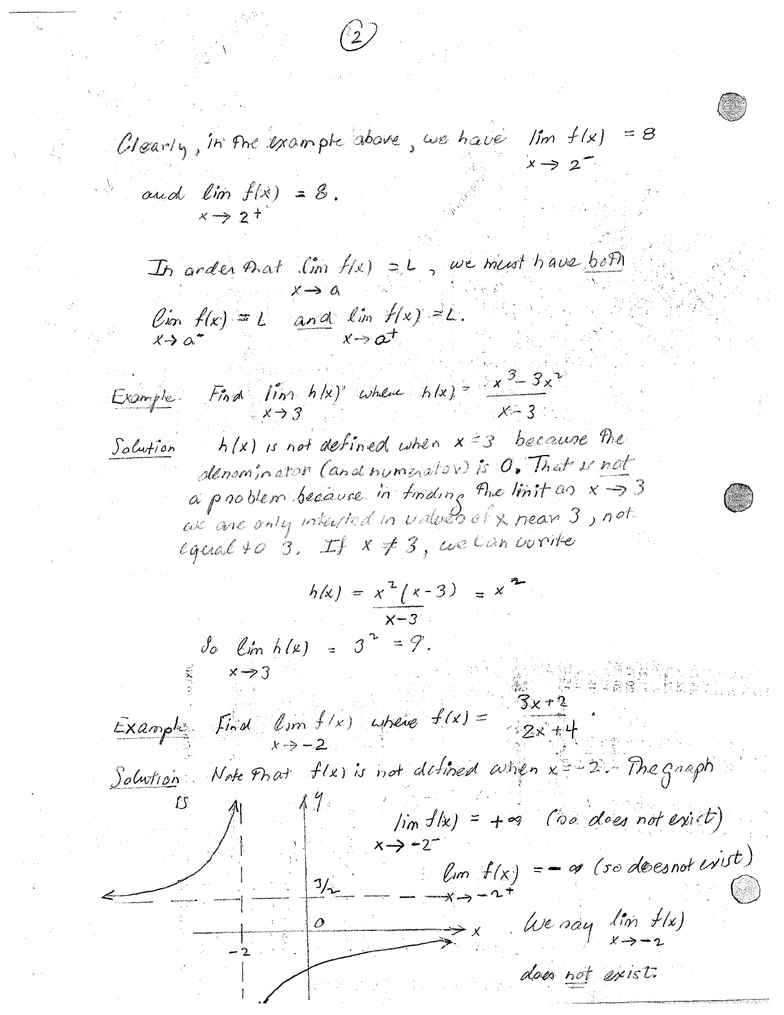 2
Clearly, in the example above, we have lim f(x) = 8
x → 2⁻
and lim f(x) = 8.
x → 2⁺
In order that lim f(x) = L, we must have both
x → a
lim f(x) = L and lim f(x) = L.
x → a⁻ x → a⁺
Example. Find lim h(x) where h(x) = x³ - 3x²
x → 3 x - 3
Solution h(x) is not defined when x = 3 because the
denominator (and numerator) is 0. That is not
a problem because in finding the limit as x → 3
we are only intersted in values of x near 3, not
equal to 3. If x ≠ 3, we can write
h(x) = x²(x-3) = x²
x-3
So lim h(x) = 3² = 9.
x → 3
Example. Find lim f(x) where f(x) = 3x+2 .
x → -2 2x+4
Solution. Note that f(x) is not defined when x = -2. The graph
is
y
lim f(x) = +∞ (so does not exist)
x → -2⁻
lim f(x) = -∞ (so does not exist)
3/2 x → -2⁺
0 x We say lim f(x)
-2 x → -2
does not exist.